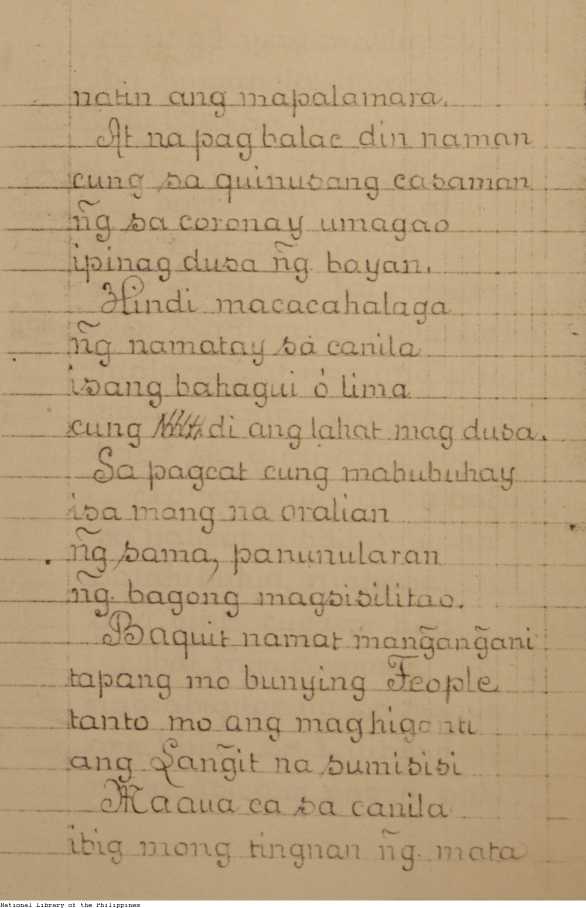 natin ang mapalamara.
At na pag balac din naman
cung sa quinusang casaman
ñg sa coronay umagao
ipinag dusa ñg bayan.
Hindi macacahalaga
ñg namatay sa canila
isang bahagui ó lima
cung di ang lahat mag dusa.
Sa pagcat cung mabubuhay
isa mang na oralian
ñg sama, panunularan
ñg bagong magsisilitao.
Baquit namat mangañgani
tapang mo bunying Feople
tanto mo ang maghiganti
ang Lañgit na sumisisi
Maaua ca sa canila
ibig mong tingnan ñg mata
National Library of the Philippines